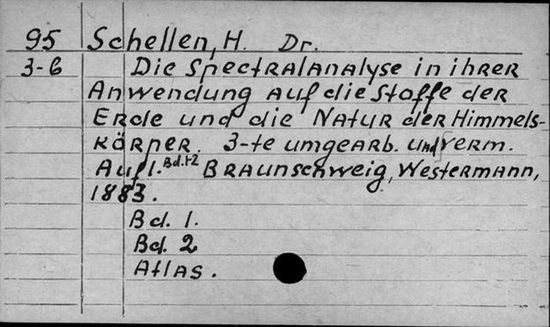 95 Schellen, H. Dr.
3-6 Die Spectralanalyse in ihrer
Anwendung auf die Stoffe der
Erde und die Natur der Himmels-
körper. 3-te umgearb. und verm.
Aufl. Bd.1-2 Braunschweig, Westermann,
1883.
Bd. 1.
Bd. 2
Atlas.